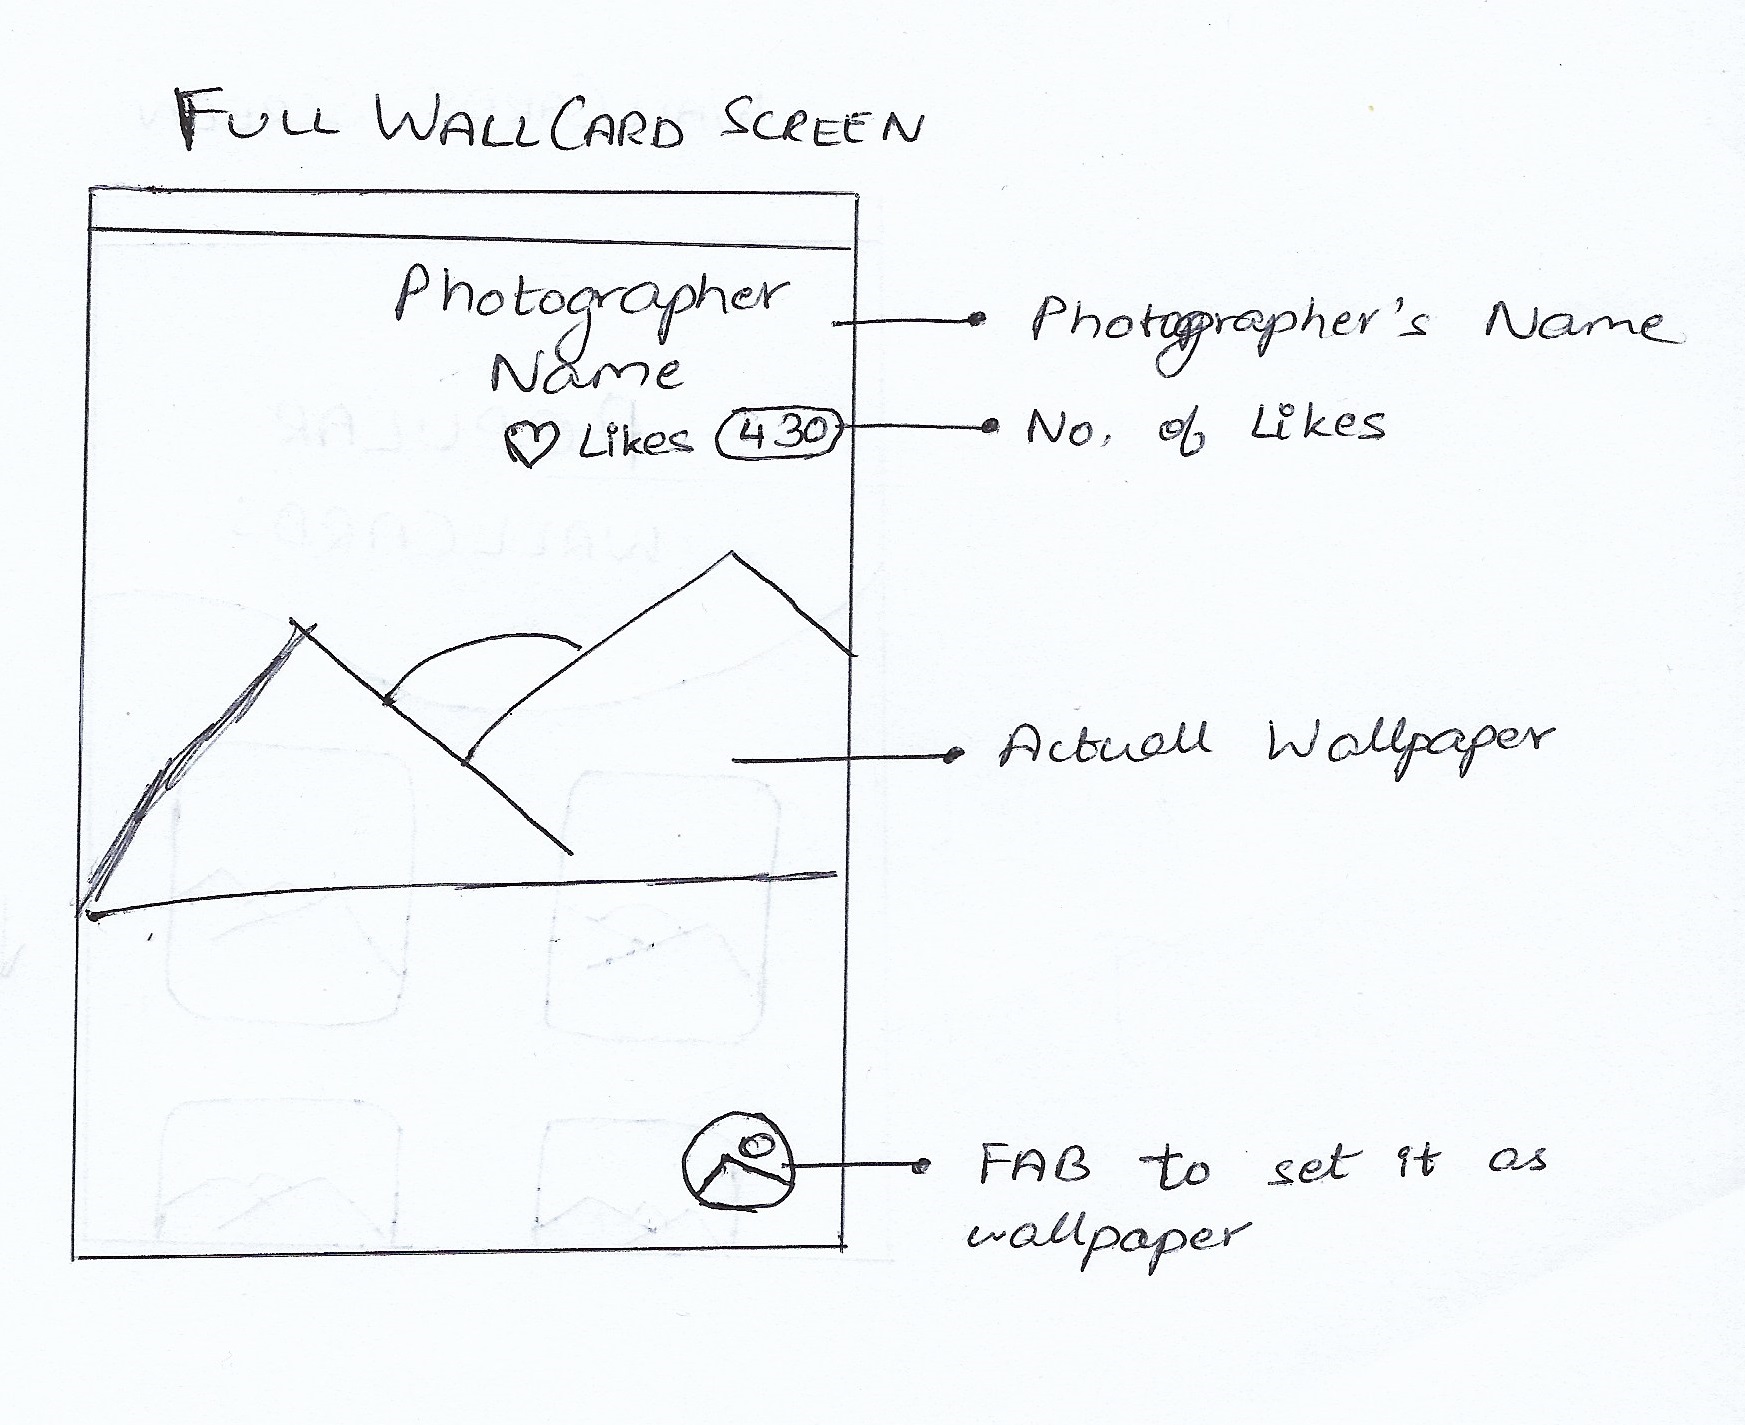 FULL WALLCARD SCREEN
Photographer
Name
Likes 430
Photographer's Name
No. of Likes
Actuall Wallpaper
FAB to set it as
wallpaper